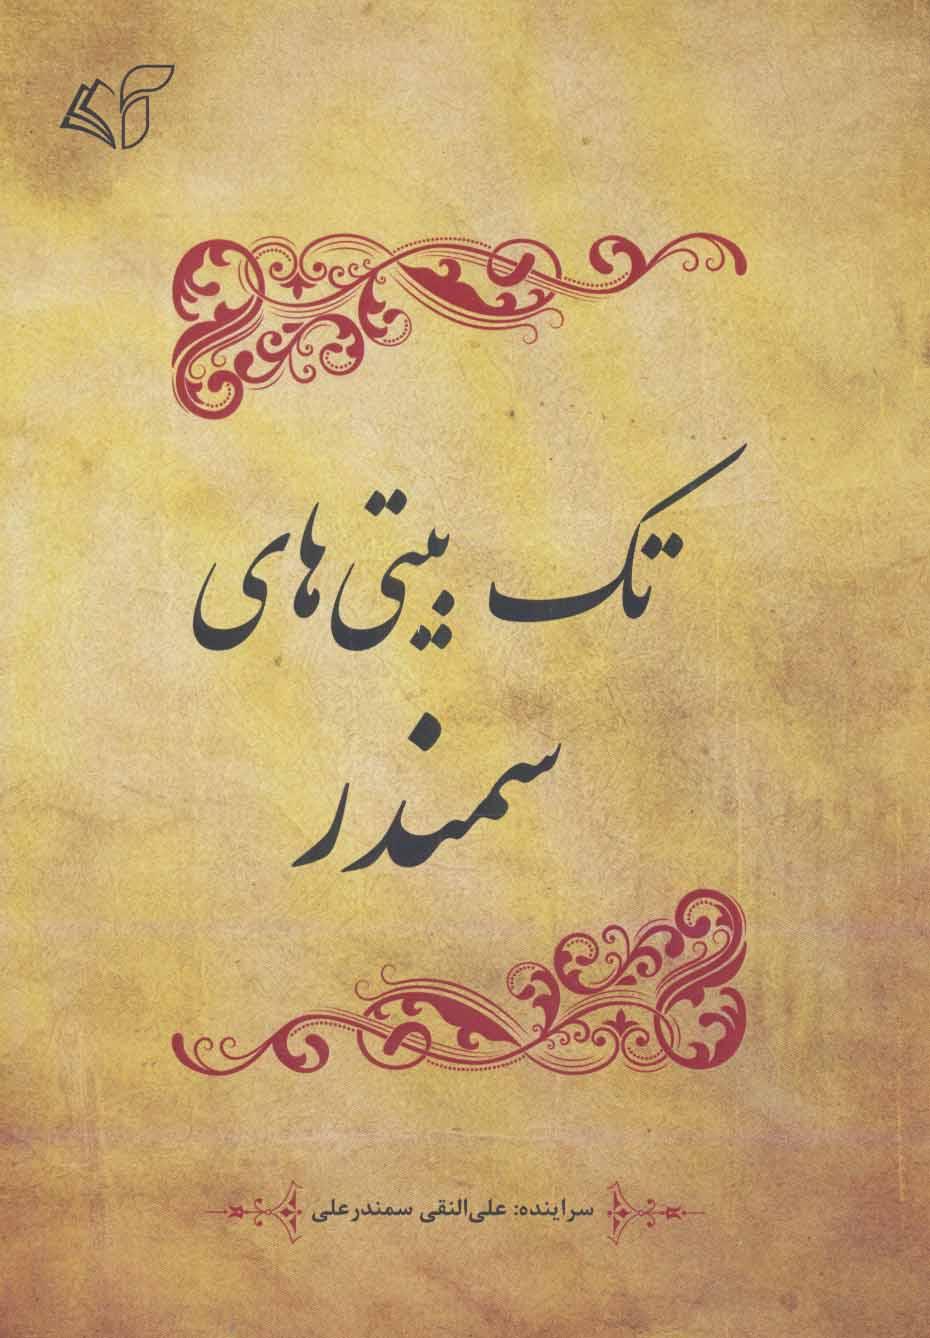 تک بیتی‌های
سمندر
سراینده: علی‌النقی سمندرعلی